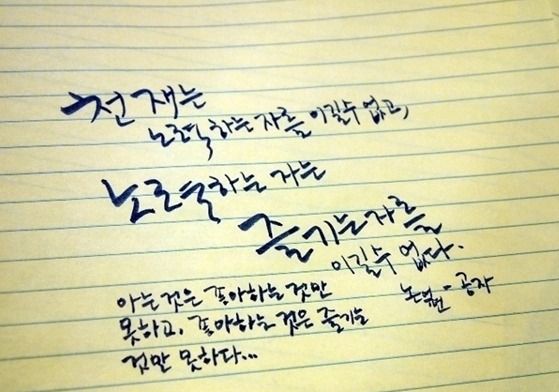 천재는
노력하는 자를 이길수 없고,
노력하는 자는
즐기는자를
이길수 없다.
아는것은 좋아하는 것만
못하고, 좋아하는 것은 즐기는
것만 못하다...
논어 - 공자